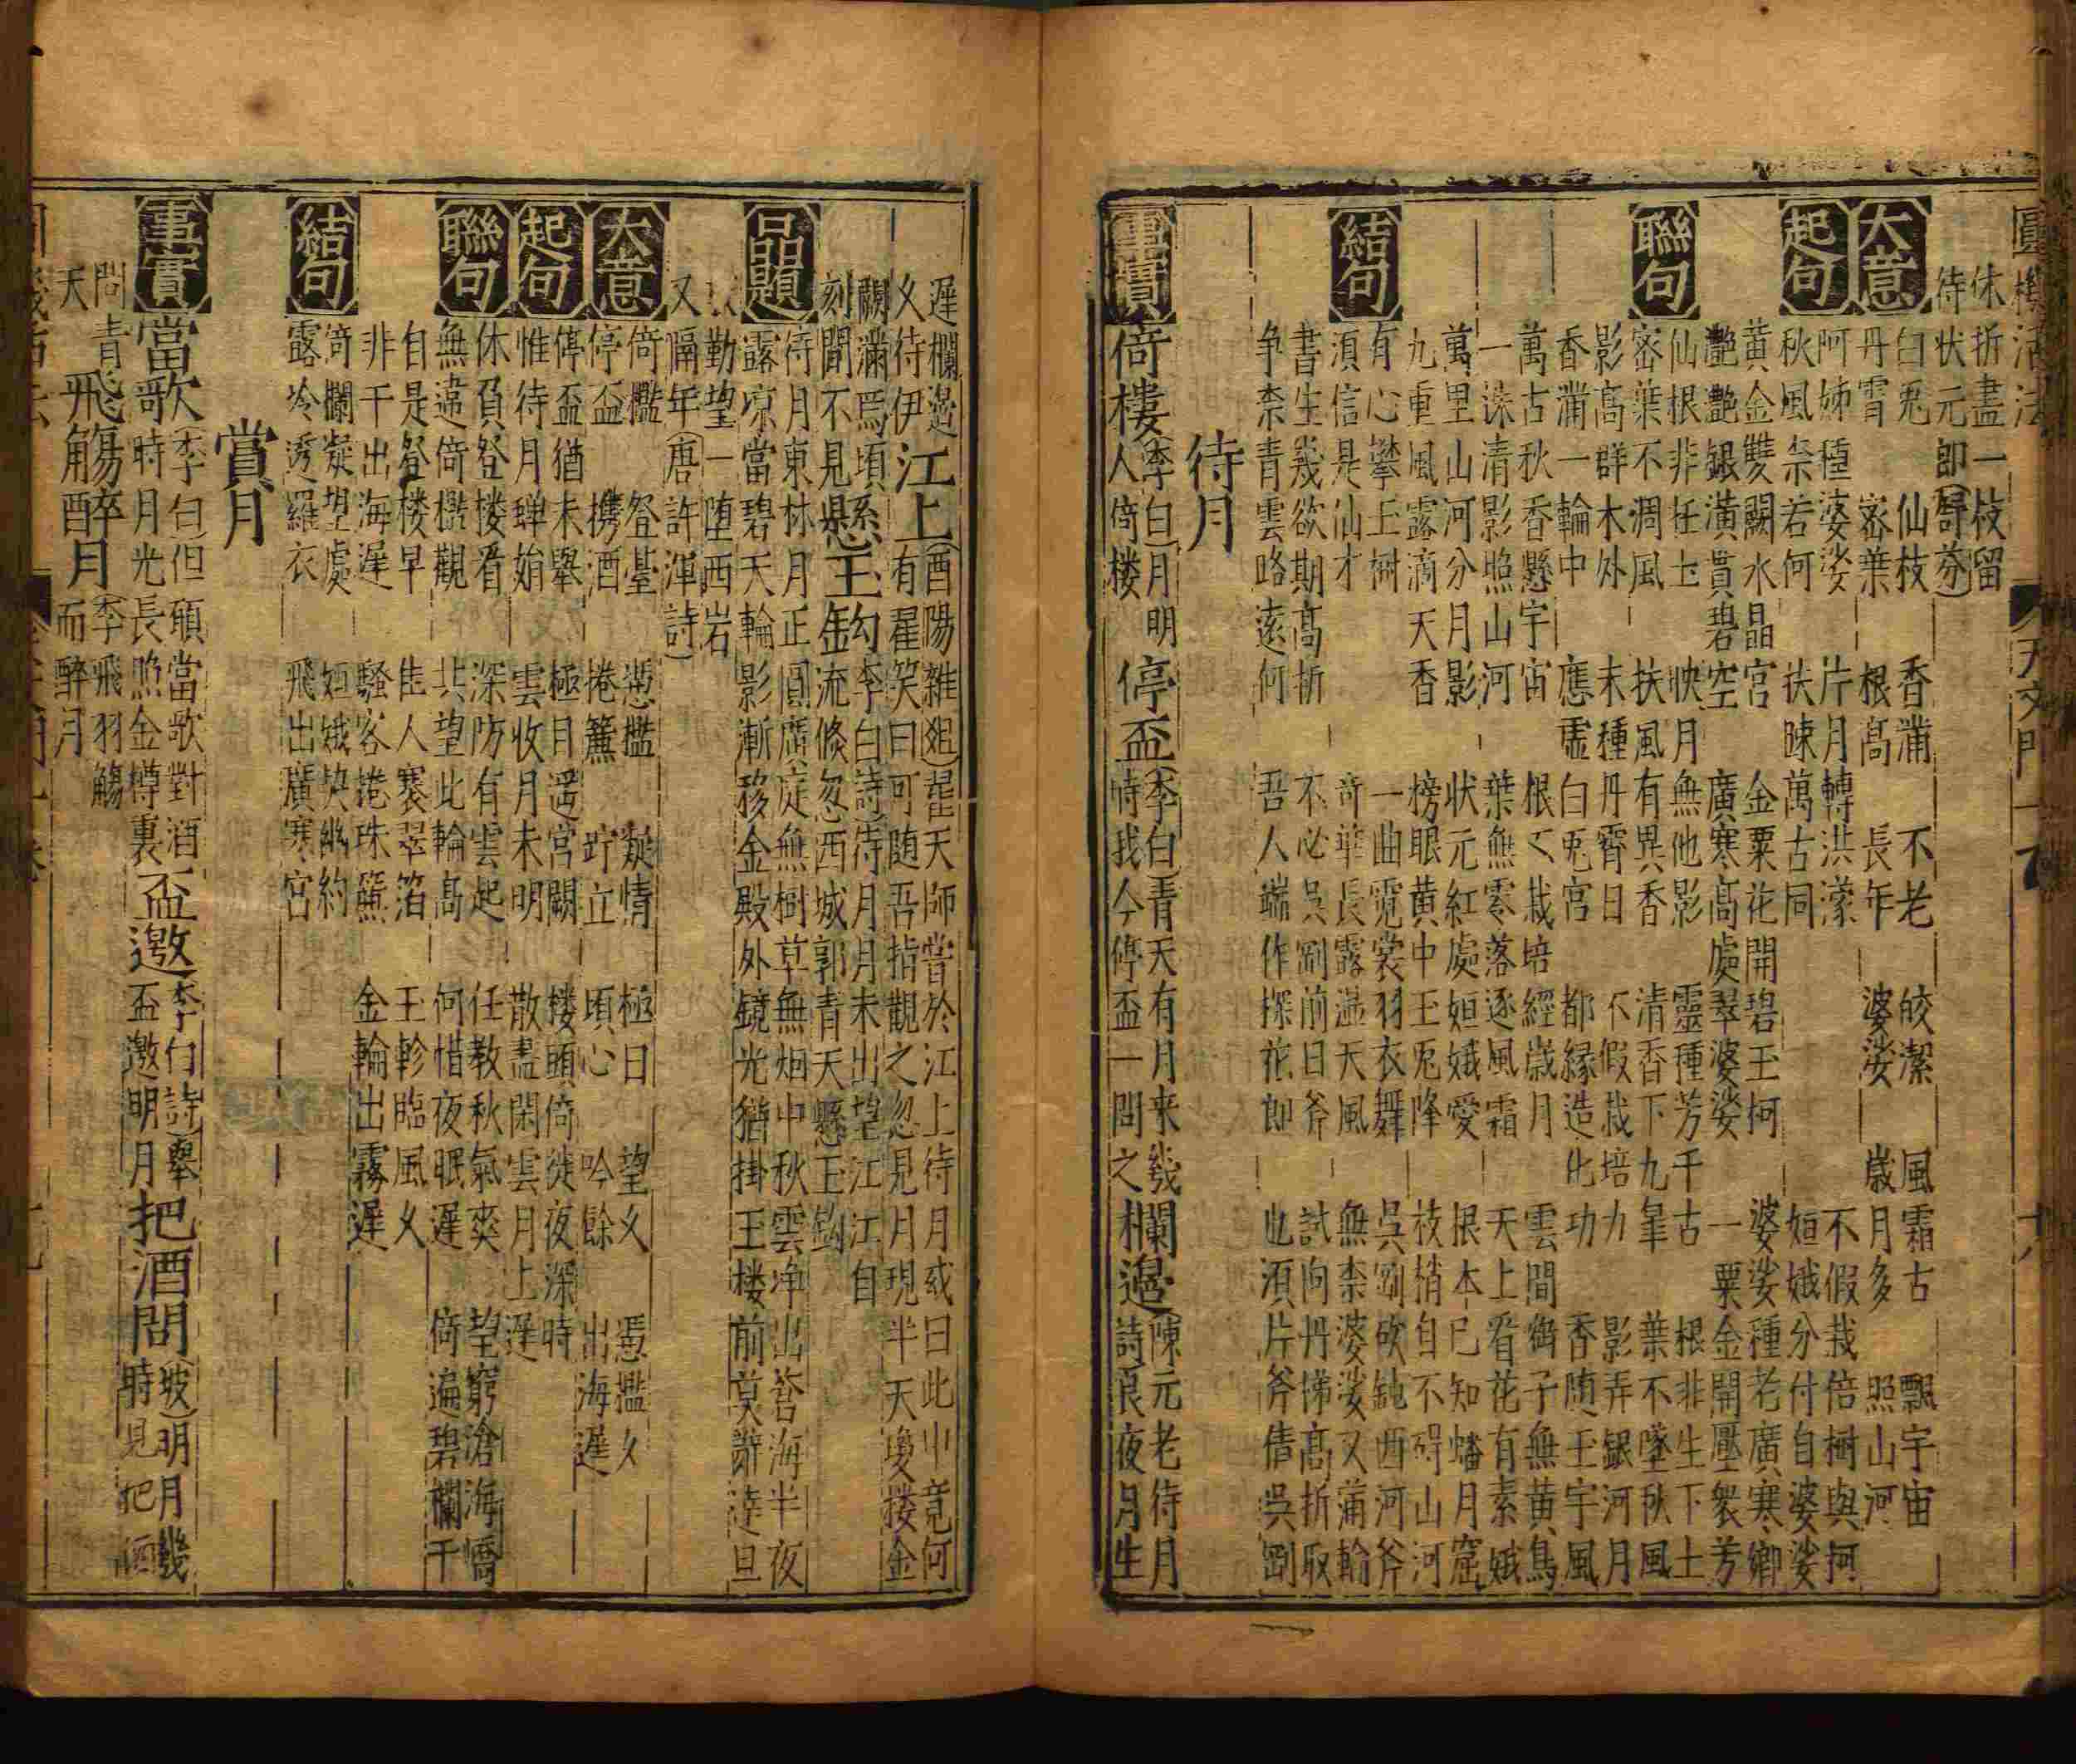 圓機活法 天文門一卷 十八
休折盡一枝留
待状元郎(舒芬)
大意 白兎 仙枝 香滿 不老 皎潔 風霜古 飄宇宙
丹霄 密葉 根高 長年 婆娑 歲月多 照山河
起句 阿姊種婆娑 片月轉洪濛 不假栽倍樹與柯
秋風奈若何 扶踈萬古同 姮娥分付自婆娑
黄金雙闕水晶宮 金粟花開碧玉柯 婆娑種老廣寒鄉
艷艷銀潢貫碧空 廣寒高處翠婆娑 一粟金開壓衆芳
聯句 仙根非任土 映月無他影 靈種芳千古 根非生下土
密葉不凋風 扶風有異香 清香下九皐 葉不墜秋風
影高群木外 末種丹霄日 不假栽培力 影弄銀河月
香滿一輪中 應盧白兎宮 都緣造化功 香随玉宇風
萬古秋香懸宇宙 根〻栽培經歲月 雲間衛子無黄鳥
一洙清影照山河 葉無零落逐風霜 天上看花有素娥
萬里山河分月影 状元紅處姮娥愛 根本已知蟠月窟
九重風露滴天香 榜眼黄中玉兎降 枝梢自不碍山河
結句 有心攀玉樹 一曲霓裳羽衣舞 吳剛砍鈍西河斧
須信是仙才 奇華長露濕天風 無柰婆娑又滿輪
書生幾欲期高折 不必吳剛前日斧 試向丹梯高折取
争柰青雲路遠何 吾人端作探花郎 也須片斧借吳剛
待月
事實 倚樓(李白)月明人倚楼 停盃(李白)青天有月来幾時我今停盃一問之 欄邉(陳元老待月詩)良夜月生
遲欄邉久待伊 江上(酉陽雜爼)有翟天師嘗於江上待月或曰此中竟何
有翟笑曰可随吾指觀之忽見月現半天瓊楼金
闕滿焉頃刻間不見 懸玉缶勾(李白詩)待月月未出望江江自流倏忽西城郭青天懸玉鈎
品題 待月東林月正圓廣庭無樹草無烟中秋雲净出蒼海半夜
露凉當碧天輪影漸移金殿外鏡光猶掛玉楼前莫辭達旦
慇勤望一堕西岩
又隔年(唐許渾詩)
大意 倚檻 登臺 憑檻 凝情 極目 望久 憑檻久
停盃 携酒 捲簾 竚立 頃心 吟餘 出海遲
起句 停盃猶未舉 極目遥宮闕 楼頭倚徙夜深時
惟待月蟬始 雲收月未明 散盡閑雲月上遲
聯句 休負登楼看 深防有雲起 任教秋氣爽 望窮滄海嶠
無違倚檻觀 共望此輪高 何惜夜眠遲 倚遍碧欄干
自是登楼早 佳人褰翠箔 玉軫臨風久
非干出海遲 騷客捲珠簾 金輪出霧遲
結句 倚欄凝望處 姮娥緊幽約
露冷透羅衣 飛出廣寒宮
賞月
事實 當歌(李白)但願當歌對酒時月光長照金樽裏 盃邀(李白詩)舉盃邀明月 把酒問(坡)明月幾時見把酒
問青天 飛觴醉月(李)飛羽觴而醉月